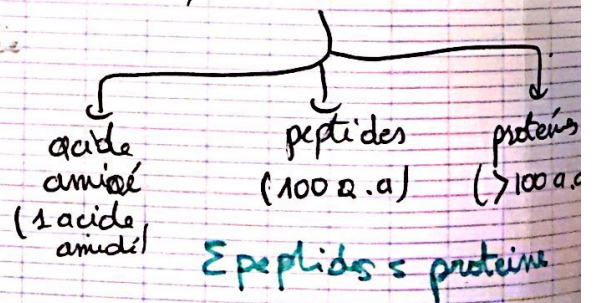 acide
aminé
(1 acide
aminé)
peptides
(100 a.a)
protéins
(>100 a.a
Σ peptides = proteine